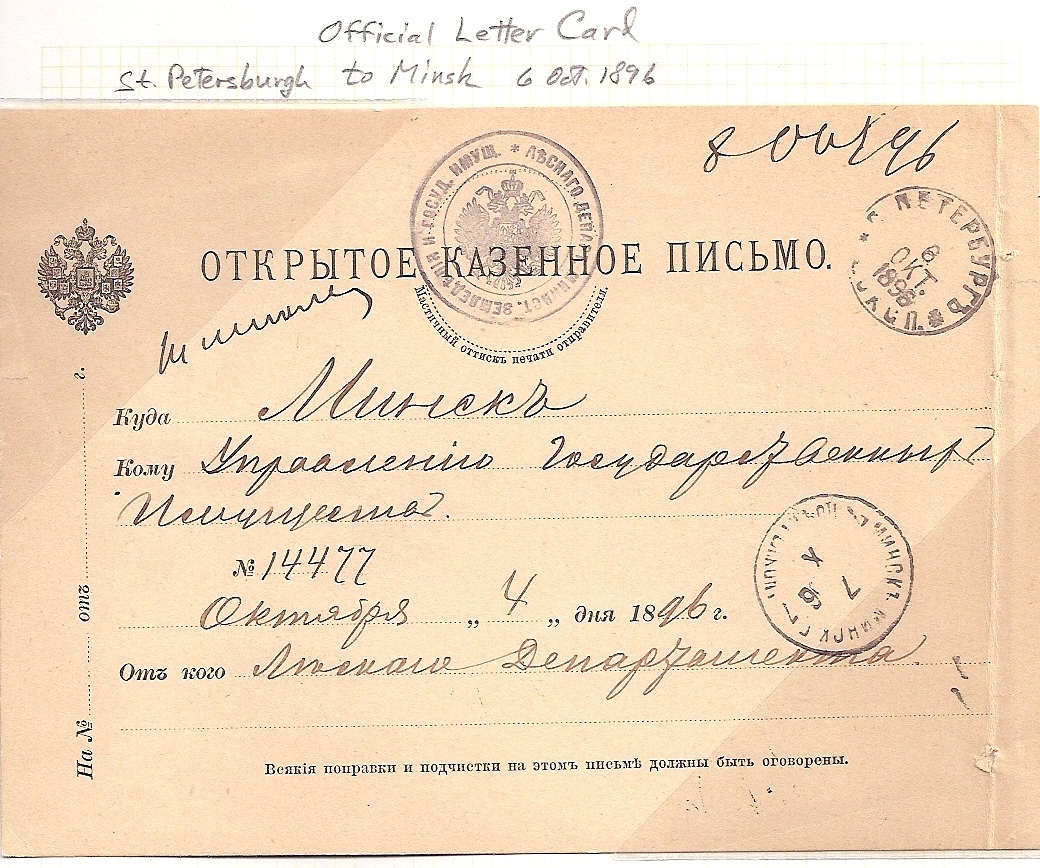 Official Letter Card
St. Petersburgh to Minsk 6 Oct. 1896
8 Окт 96
С. ПЕТЕРБУРГЪ
6
ОКТ.
1896
ЛѢСНАГО ДЕПАР. МИНИСТ. ЗЕМЛЕДѢЛІЯ И ГОСУД. ИМУЩ.
ОТКРЫТОЕ КАЗЕННОЕ ПИСЬМО.
Мастичный оттискъ печати отправителя.
Куда Минскъ
Кому Управленію Государственныхъ
Имуществъ.
№ 14477
Октября „ 4 „ дня 1896 г.
Отъ кого Лѣснаго Департамента
МИНСКЪ МИНСК. Г.
7
X
96
На № отъ г.
Всякія поправки и подчистки на этомъ письмѣ должны быть оговорены.